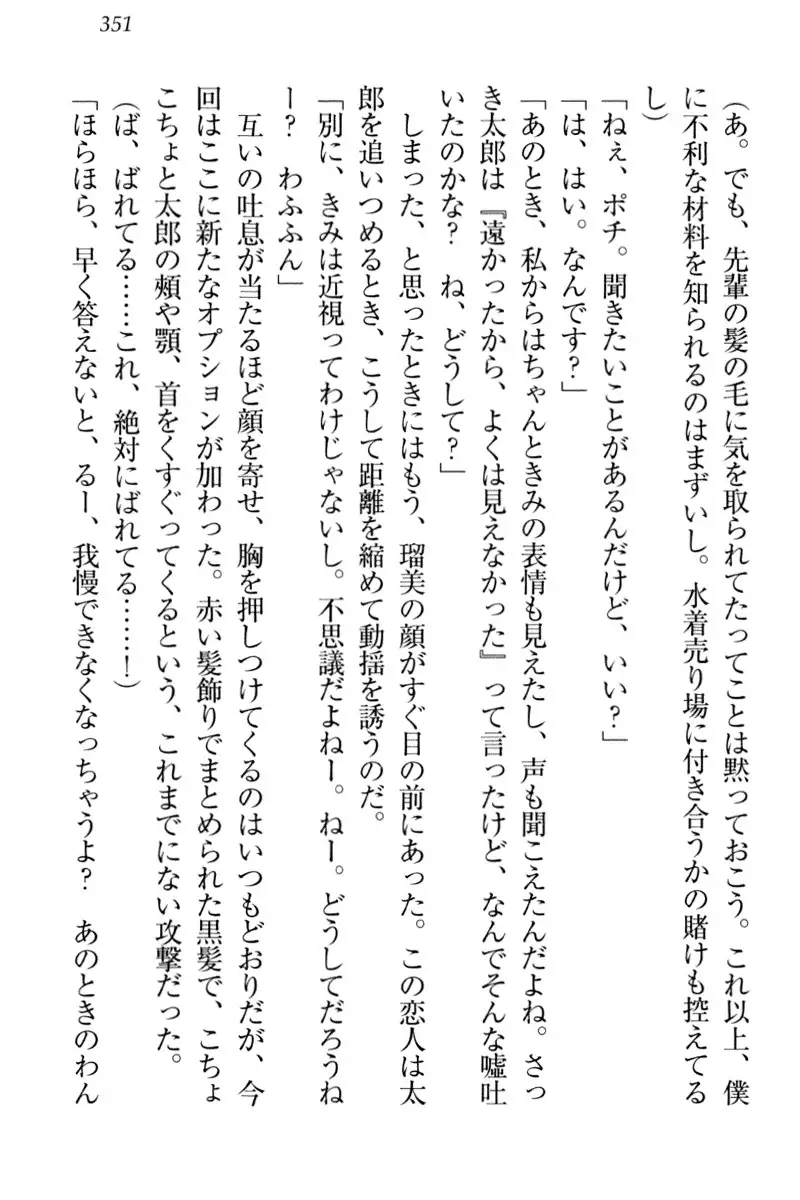 351
(あ。でも、先輩の髪の毛に気を取られてたってことは黙っておこう。これ以上、僕
に不利な材料を知られるのはまずいし。水着売り場に付き合うかの賭けも控えてる
し)
「ねぇ、ポチ。聞きたいことがあるんだけど、いい?」
「は、はい。なんです?」
「あのとき、私からはちゃんときみの表情も見えたし、声も聞こえたんだよね。さっ
き太郎は『遠かったから、よくは見えなかった』って言ったけど、なんでそんな嘘吐
いたのかな? ね、どうして?」
しまった、と思ったときにはもう、瑠美の顔がすぐ目の前にあった。この恋人は太
郎を追いつめるとき、こうして距離を縮めて動揺を誘うのだ。
「別に、きみは近視ってわけじゃないし。不思議だよねー。ねー。どうしてだろうね
ー? わふふん」
互いの吐息が当たるほど顔を寄せ、胸を押しつけてくるのはいつもどおりだが、今
回はここに新たなオプションが加わった。赤い髪飾りでまとめられた黒髪で、こちょ
こちょと太郎の頰や顎、首をくすぐってくるという、これまでにない攻撃だった。
(ば、ばれてる……これ、絶対にばれてる……!)
「ほらほら、早く答えないと、るー、我慢できなくなっちゃうよ? あのときのわん